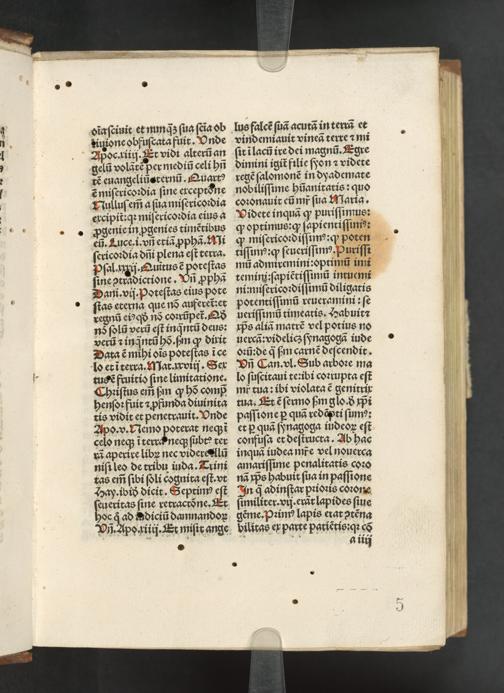 oīa sciuit et nunq̄ȝ sua sciā ob
liuione obfuscata fuit. Vnde
Apoc.xiiij. Et vidi alterū an
gelū volātē per mediū celi hn̄
tē euangeliū eternū. Quarta
ē misericordia sine exceptōne
Nullus em̄ a sua misericordia
excipit: qr misericordia eius a
ꝓgenie in ꝓgenies timētibus
eū. Luce.i. vn̄ etiā ꝓphā. Mi
sericordia dn̄i plena est terra.
Psal.xxxij. Quitus ē potestas
sine ꝯtradictione. Vn̄ ꝓphā
Dani.vij. Potestas eius pote
stas eterna que nō auferet: et
regnū eiꝰ qd̄ nō corrūpet. Qd̄
nō solū verū est inq̄ntū deus:
verū ⁊ inq̄ntū hō. sm̄ qd̄ dixit
Data ē mihi oīs potestas i ce
lo et i terra. Mat.xxviij. Sex
tus ē fruitio sine limitatione.
Christus em̄ sm̄ qd̄ hō compre
hensor fuit ⁊ ꝓfunda diuinita
tis vidit et penetrauit. Vnde
Apo.v. Nemo poterat neqȝ i
celo neqȝ i terra neqȝ subtꝰ ter
rā aperire librū nec videre illū
nisi leo de tribu iuda. Trini
tas em̄ sibi soli cognita est. vt
hay. ibidē dicit. Septimꝰ est
seueritas sine retractōne. Et
hoc qd̄ ad iudiciū damnandoꝝ
Vn̄. Apo.xiiij. Et misit ange
lus falcē suā acutā in terrā et
vindemiauit vineā terre ⁊ mi
sit i lacū ire dei magnū. Egre
dimini igit̄ filie syon ⁊ videte
regē salomonē in dyademate
nobilissime hūanitatis: quo
coronauit eū mr̄ sua Maria.
Videte inquā qȝ purissimus:
qȝ optimus: qȝ sapientissimꝰ:
qȝ misericordissimꝰ: qȝ poten
tissimꝰ: qȝ seuerissimꝰ. Purissi
mū admiremini: optimū imi
temini: sapiētissimū intuemi
ni: misericordissimū diligatis
potentissimū reueramini: se
uerissimū timeatis. Habuit ⁊
xp̄s aliā matrē vel potius no
uercā: videlicȝ synagogā iude
oꝝ: de qȝ sm̄ carnē descendit.
Vn̄ Can.vl. Sub arbore ma
lo suscitaui te: ibi corrupta est
mr̄ tua: ibi violata ē genitrix
tua. Et ē sermo sm̄ glo. d̄ xp̄i
passione p quā redēpti sumꝰ:
et p quā synagoga iudeoꝝ est
confusa et destructa. Ab hac
inquā iudea mr̄e vel nouerca
amarissime penalitatis coro
nā xp̄s habuit sua in passione
In q̄ ad instar prioris corone
similiter.vij. erāt lapides sue
gēme. Primꝰ lapis erat ꝯtēna
bilitas ex parte patiētis: qr cō
a iiij
5